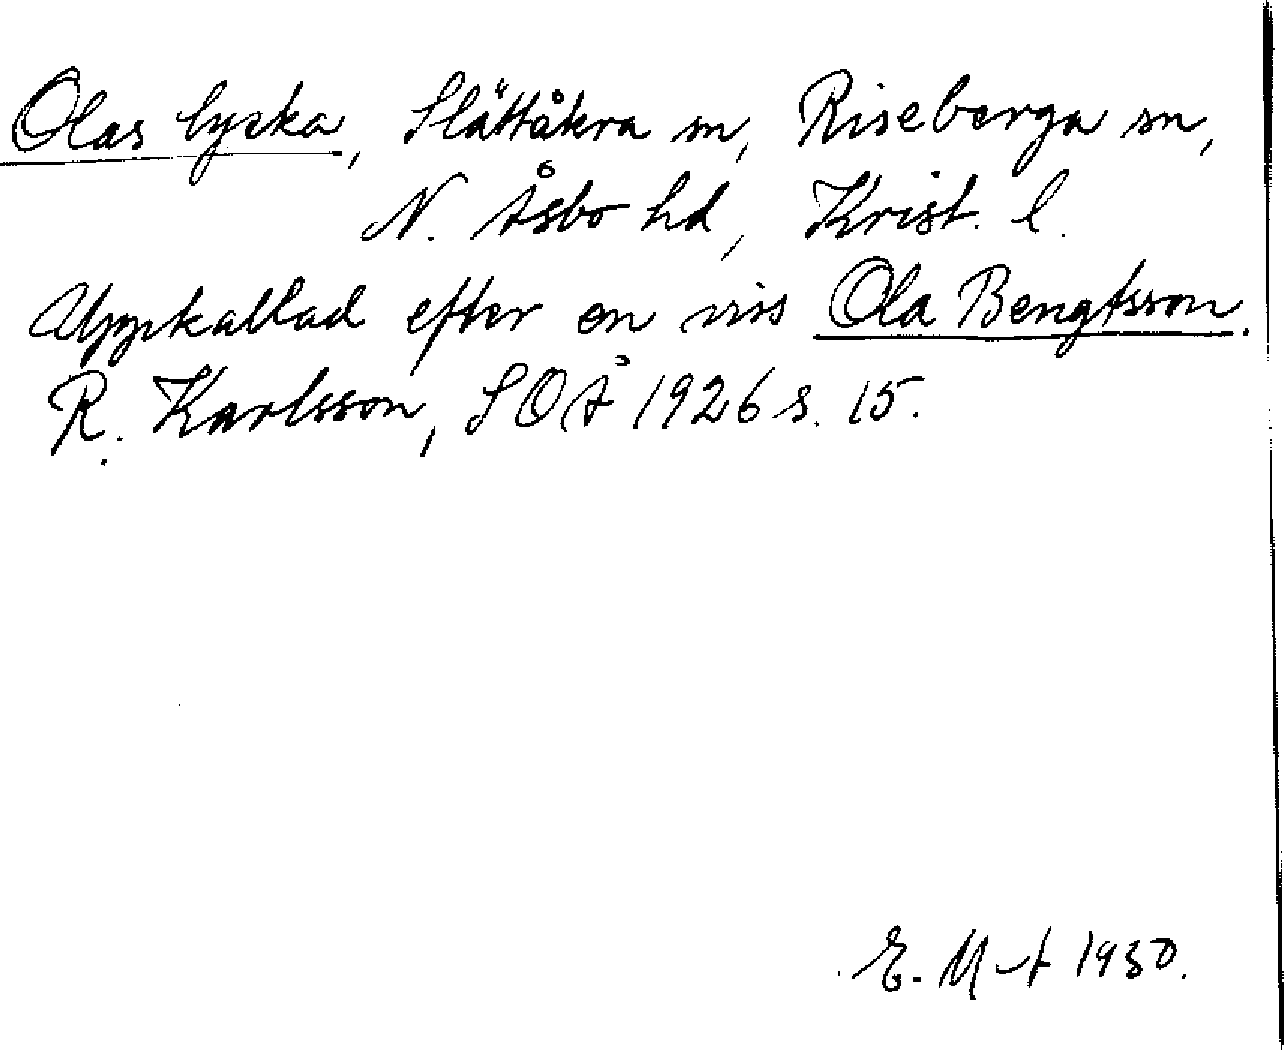 Olas lyska, Slättåkra sn, Riseberga sn,
N. Åsbo hd, Krist. l.
Uppkallad efter en viss Ola Bengtsson.
R. Karlsson, SOÅ 1926 s. 15.
E. M-t 1930.